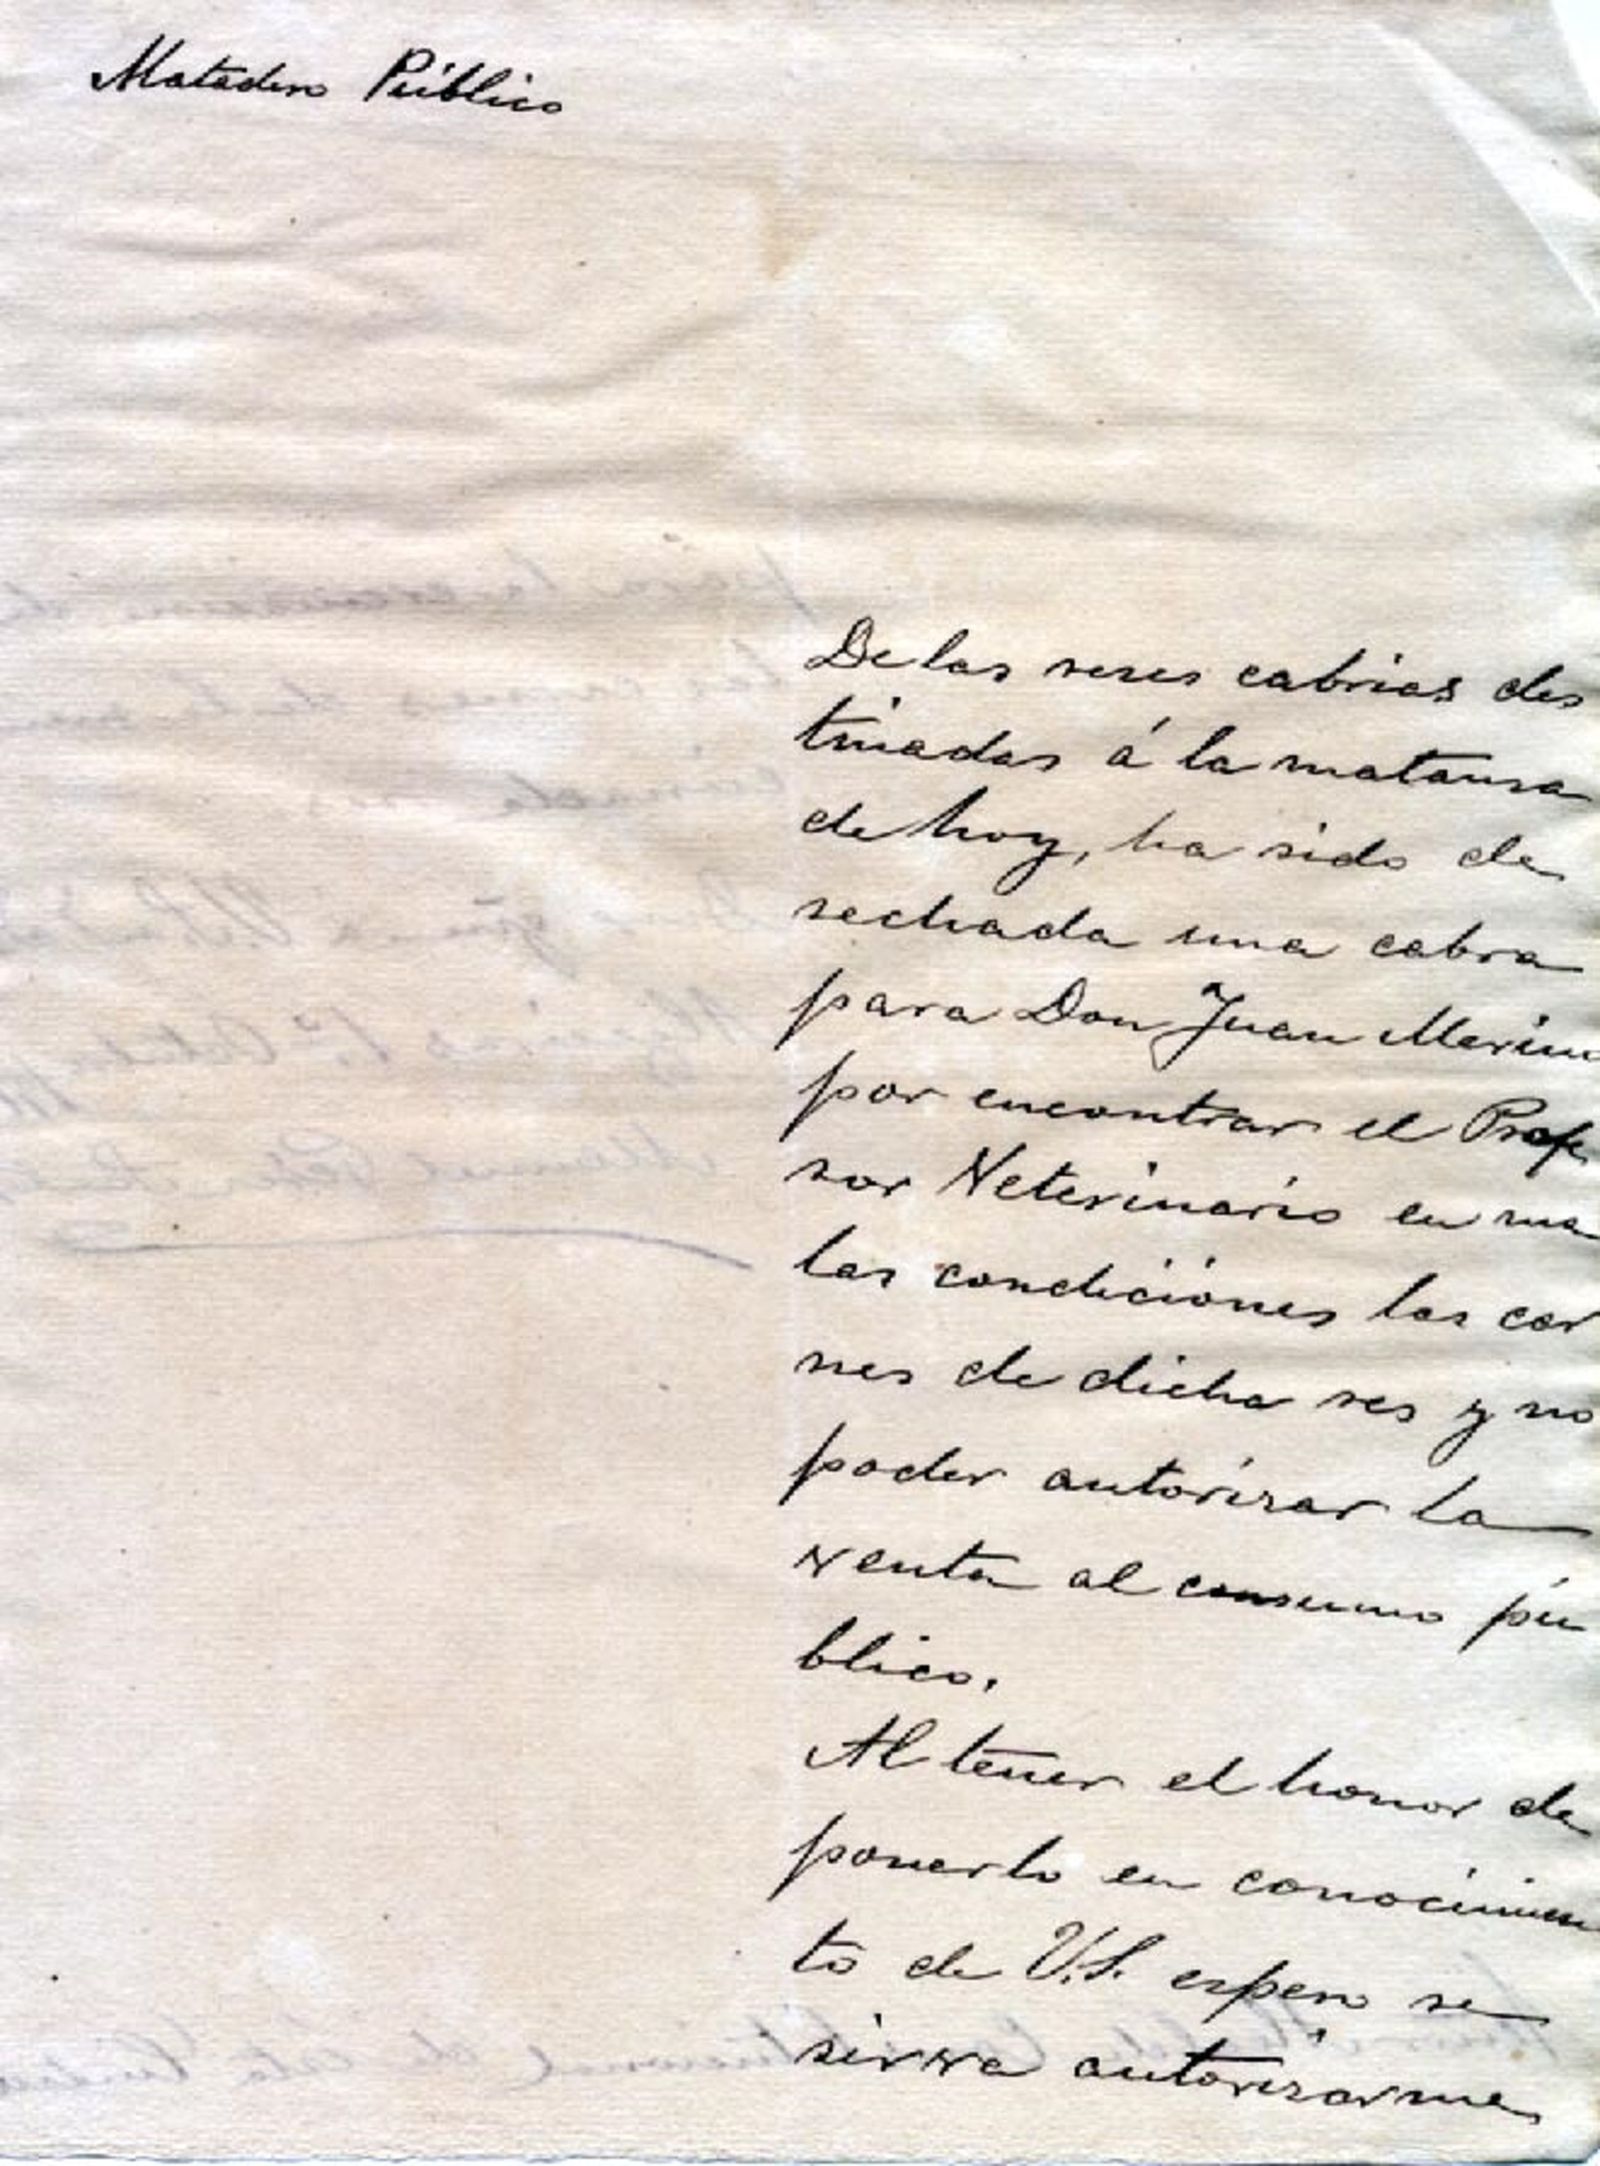 Matadero Público
De las reses cabrias des
tinadas á la matansa
de hoy, ha sido de
sechada una cabra
para Don Juan Merino
por encontrar el Profe
sor Veterinario en ma
las condiciones las car
nes de dicha res y no
poder autorizar la
venta al consumo pú
blico.
Al tener el honor de
ponerlo en conocimien
to de V.S. espero se
sirva autorizarme